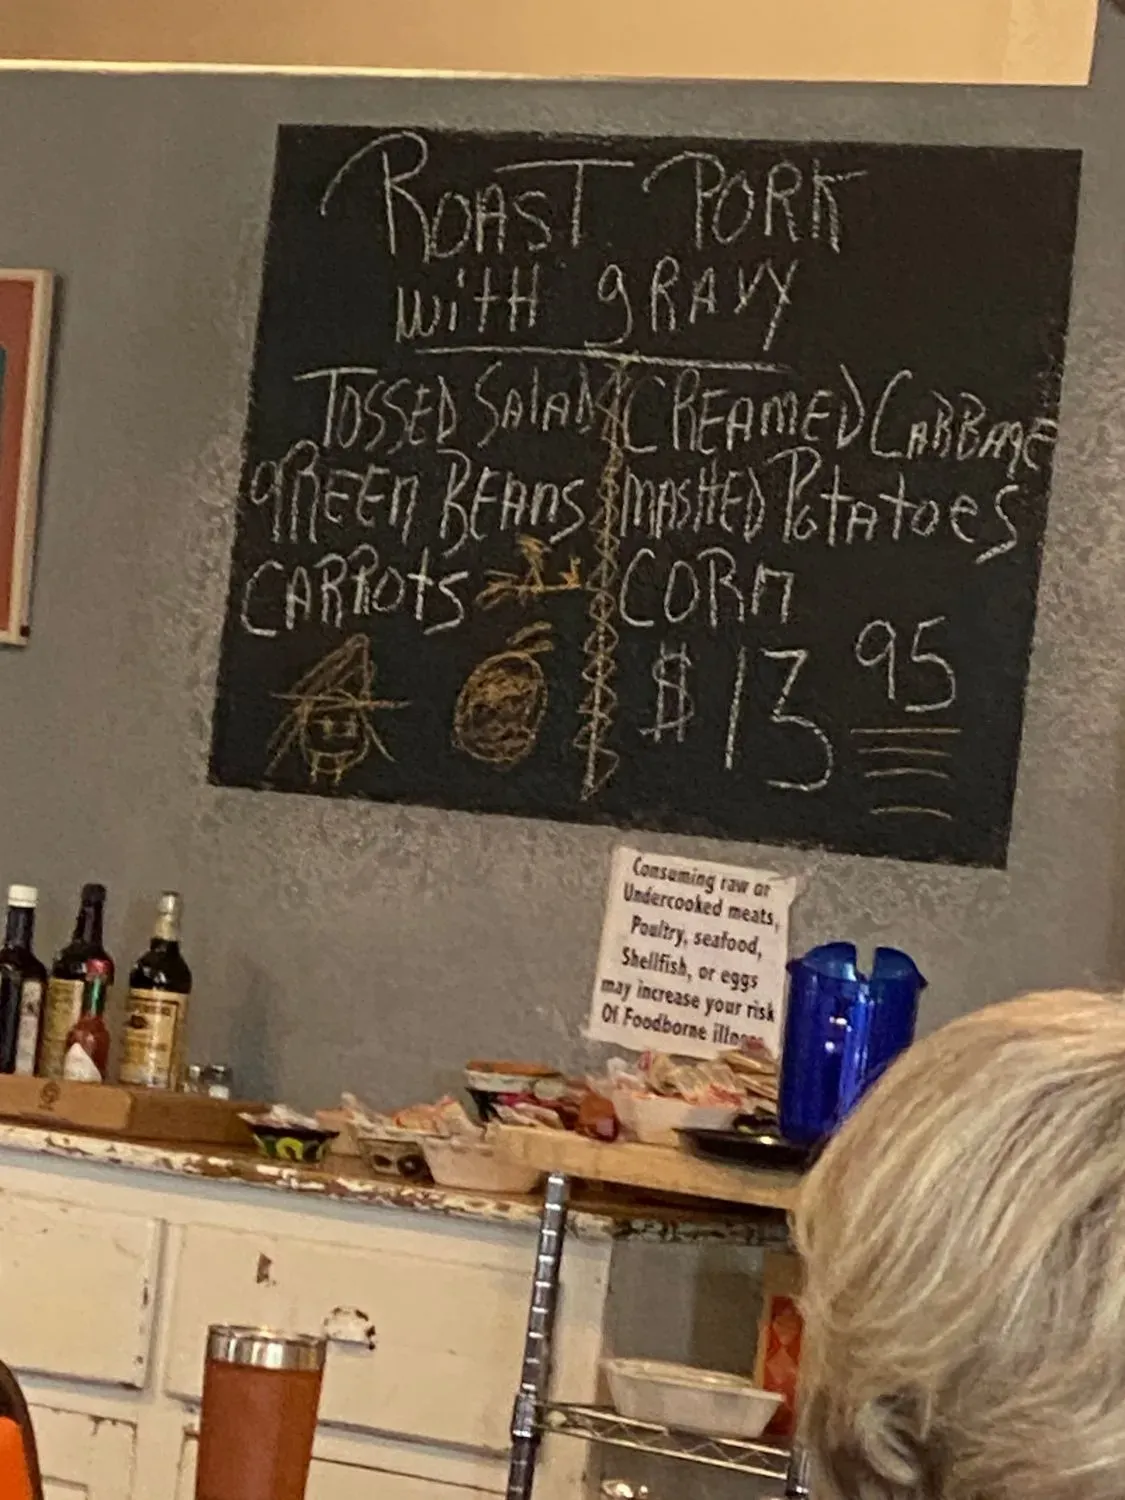 ROAST PORK
WITH gRAVY
TOSSED SALAD
gREEN BEANS
CARROTS
CREAMED CABBAGE
MASHED POTATOES
CORN
$13 95
Consuming raw or
Undercooked meats,
Poultry, seafood,
Shellfish, or eggs
may increase your risk
Of Foodborne illness